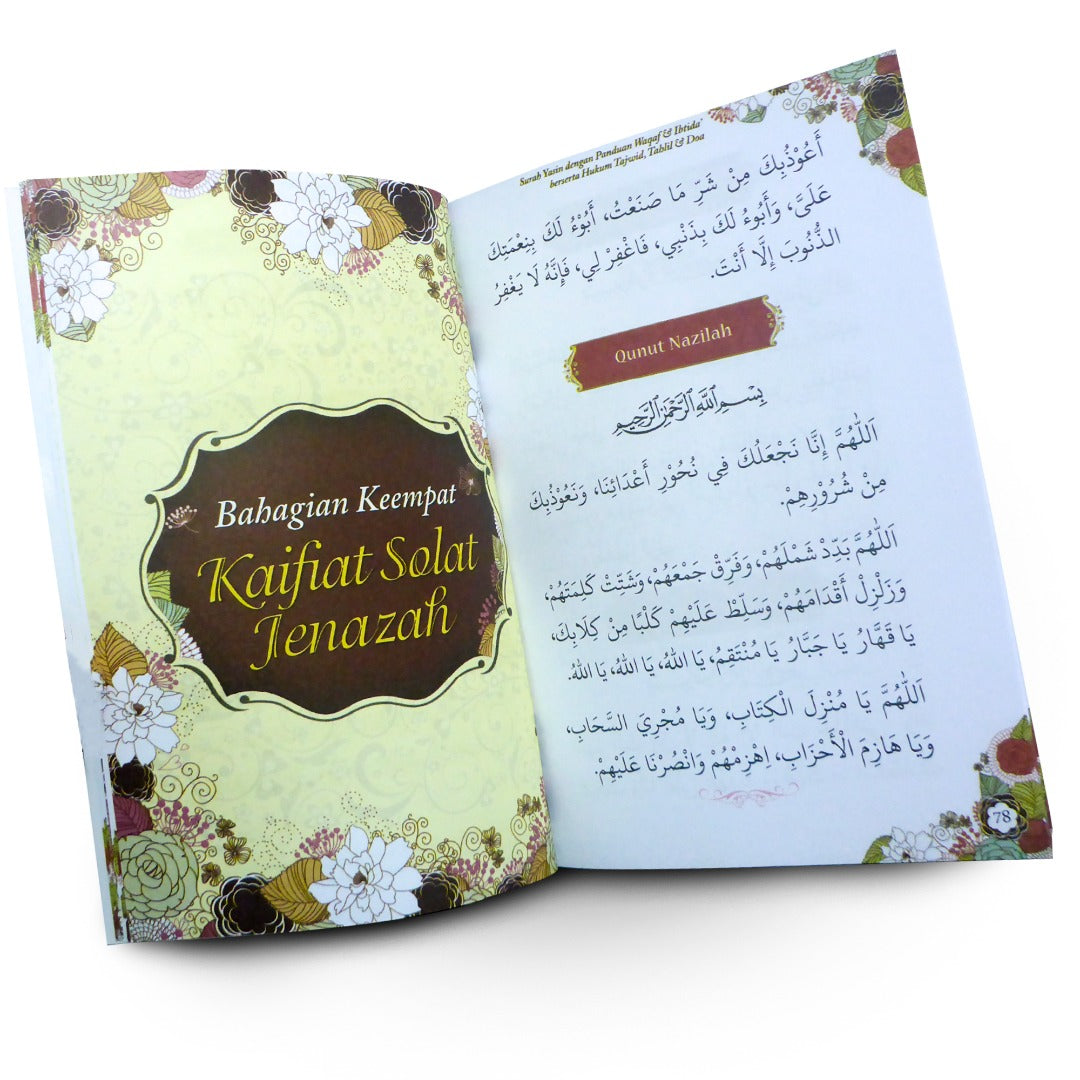 Bahagian Keempat
Kaifiat Solat
Jenazah
Surah Yasin dengan Panduan Waqaf & Ibtida'
berserta Hukum Tajwid, Tahlil & Doa
أَعُوْذُبِكَ مِنْ شَرِّ مَا صَنَعْتُ، أَبُوْءُ لَكَ بِنِعْمَتِكَ
عَلَىَّ، وَأَبُوءُ لَكَ بِذَنْبِي، فَاغْفِرْ لِي، فَإِنَّهُ لَا يَغْفِرُ
الذُّنُوبَ إِلَّا أَنْتَ.
Qunut Nazilah
بِسْمِ ٱللَّهِ ٱلرَّحْمَٰنِ ٱلرَّحِيمِ
اَللّٰهُمَّ إِنَّا نَجْعَلُكَ فِي نُحُوْرِ أَعْدَائِنَا، وَنَعُوْذُبِكَ
مِنْ شُرُوْرِهِمْ.
اَللّٰهُمَّ بَدِّدْ شَمْلَهُمْ، وَفَرِّقْ جَمْعَهُمْ، وَشَتِّتْ كَلِمَتَهُمْ،
وَزَلْزِلْ أَقْدَامَهُمْ، وَسَلِّطْ عَلَيْهِمْ كَلْبًا مِنْ كِلَابِكَ،
يَا قَهَّارُ يَا جَبَّارُ يَا مُنْتَقِمُ، يَا اللهُ، يَا اللهُ، يَا اللهُ.
اَللّٰهُمَّ يَا مُنْزِلَ الْكِتَابِ، وَيَا مُجْرِيَ السَّحَابِ،
وَيَا هَازِمَ الْأَحْزَابِ، اِهْزِمْهُمْ وَانْصُرْنَا عَلَيْهِمْ.
78